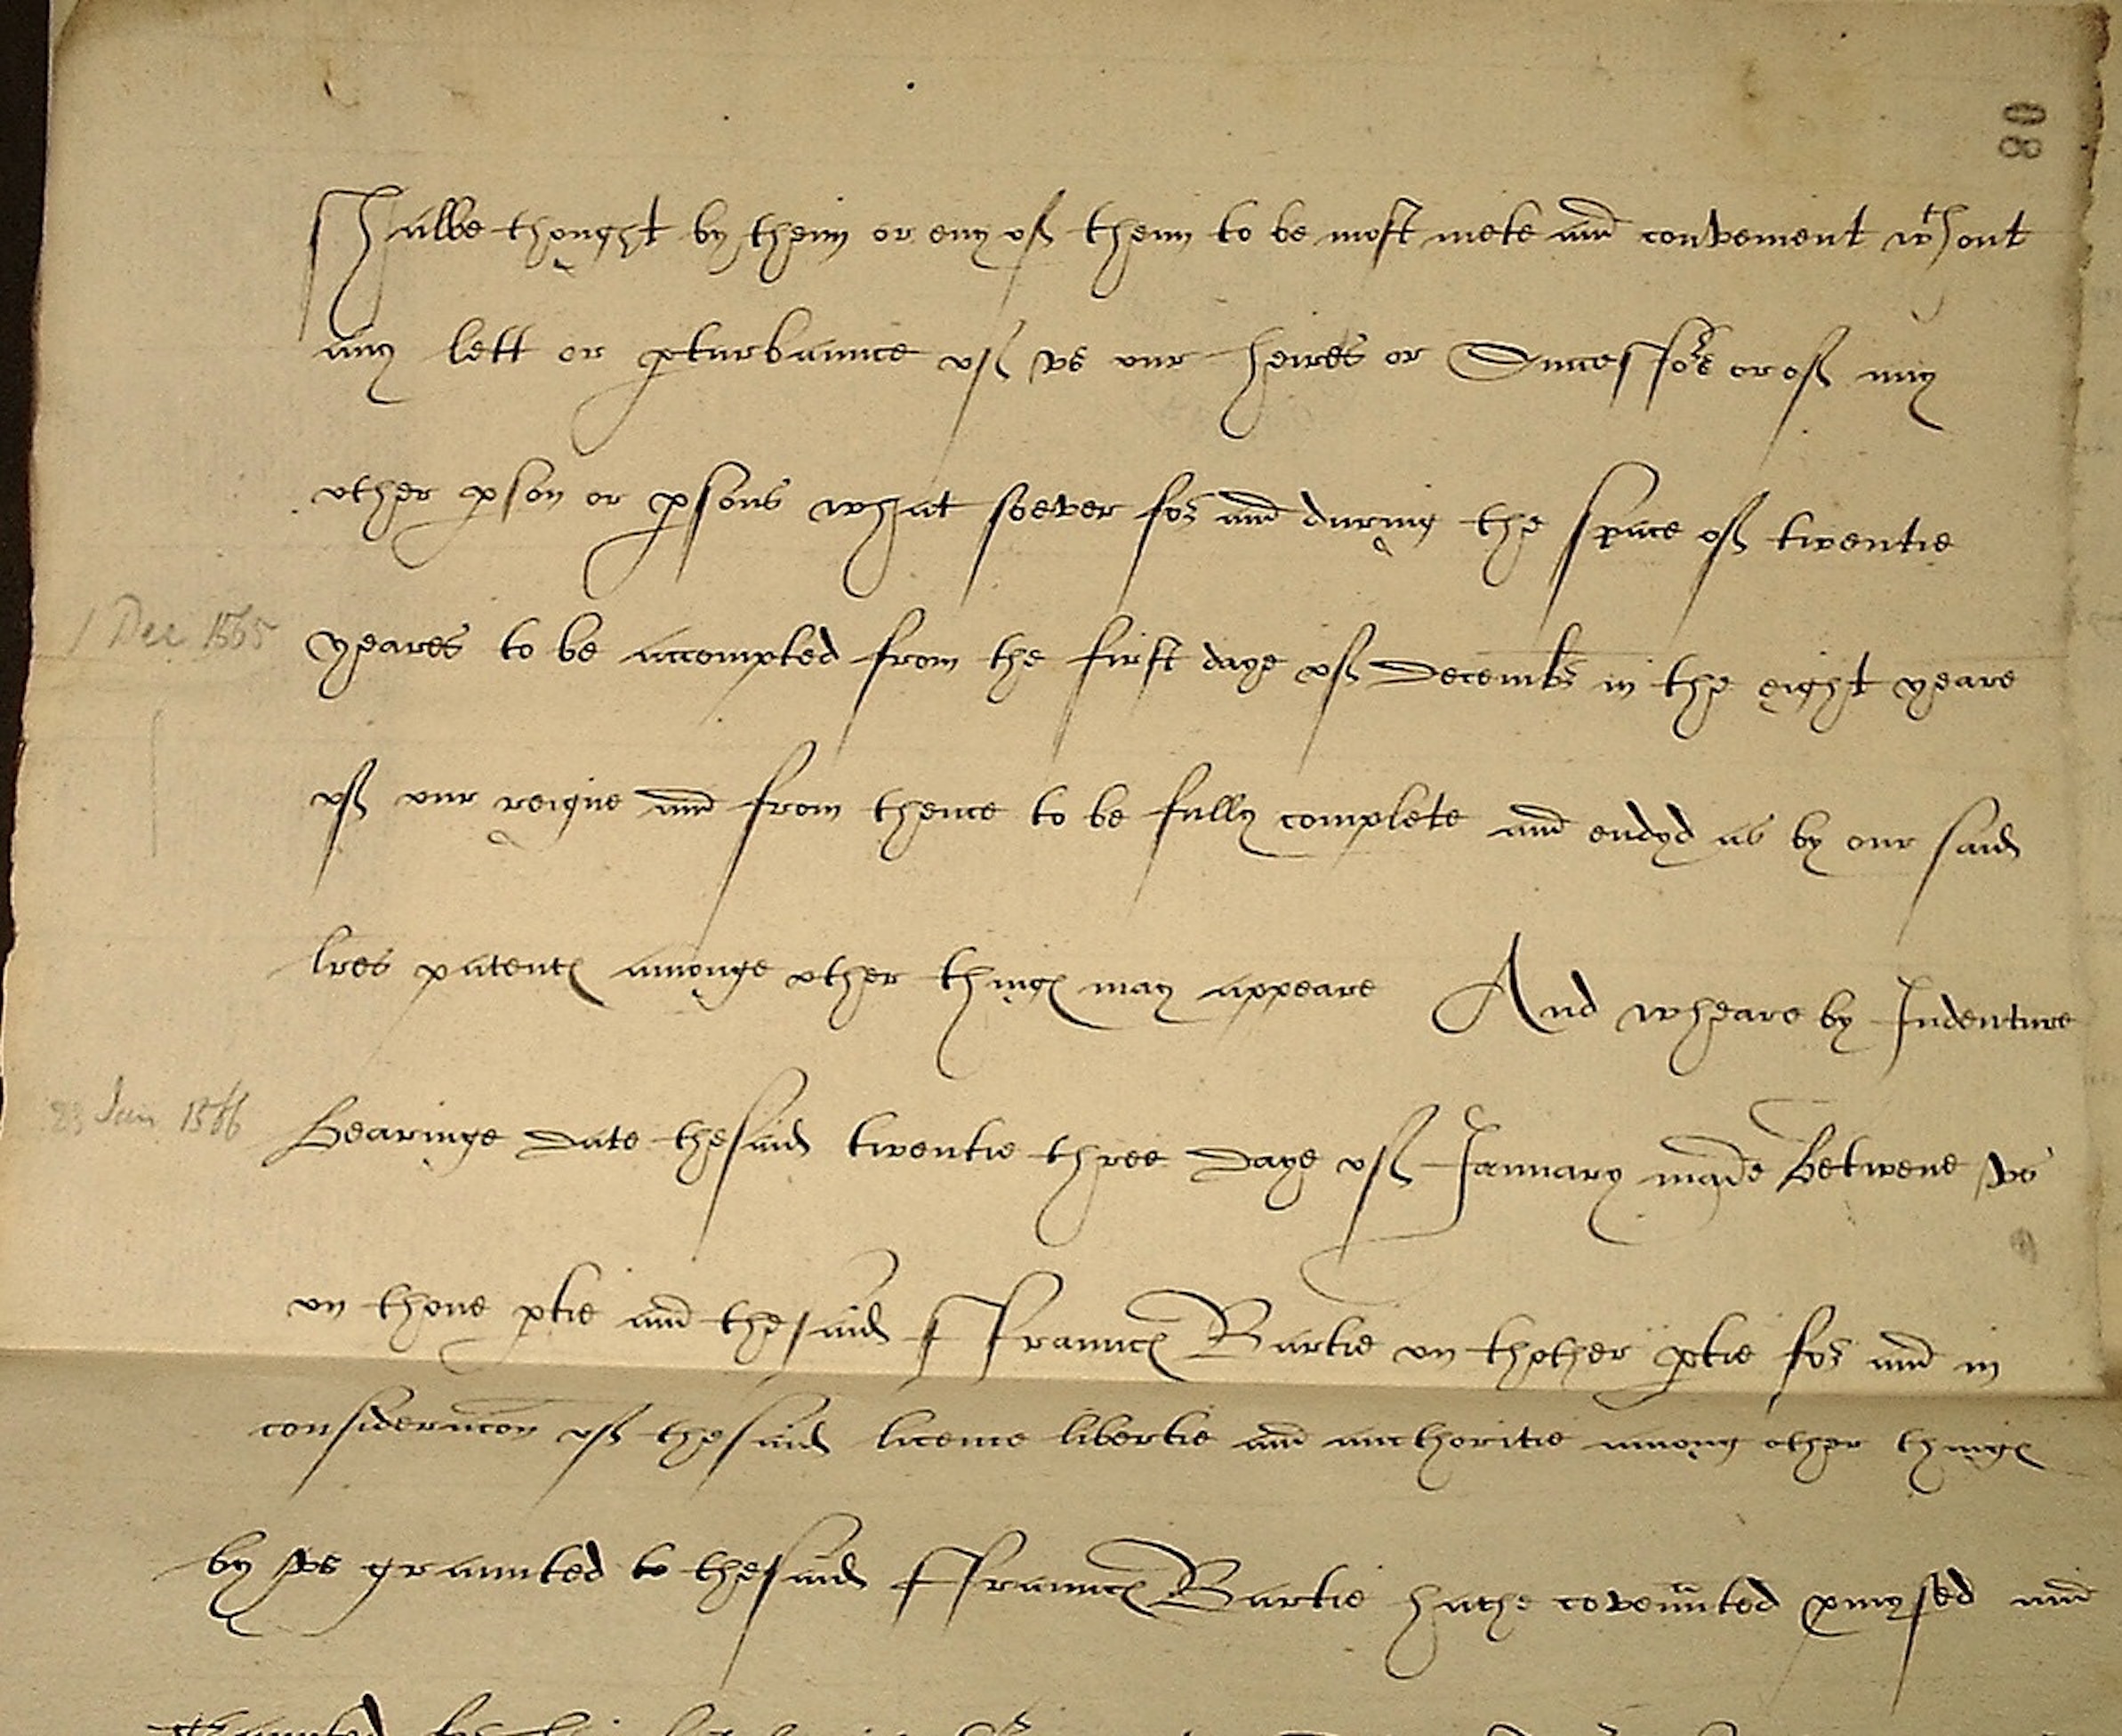 80
shalbe thought by theim or eny of theim to be most mete and convenient wthout
any lett or pturbaunce of vs our heires or Successors or of any
other pson or psons what soever for and during the space of twentie
1 Dec 1565 yeares to be accompted from the first daye of Decembr in the eight yeare
of our reigne and from thence to be fully complete and endyd as by our said
lres patentes amonge other thinges may appeare And wheare by Indenture
23 Jan 1566 Bearinge date thesaid twentie three daye of January made Betwene vs
on thone ptie and thesaid ffraunces Bartie on thother ptie for and in
consideracon of thesaid licence libertie and authoritie among other thinges
by vs graunted to thesaid ffraunces Bartie hathe covenunted pmysed and
graunted for